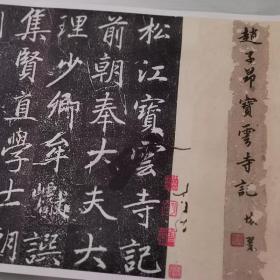 趙子昂寶雲寺記
松江寶雲寺記
前朝奉大夫大
理少卿牟巘譔
集賢直學士朝